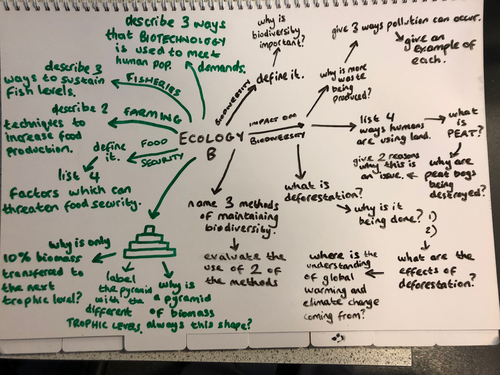 describe 3 ways
that BIOTECHNOLOGY
is used to meet
human pop.
demands.
describe 3
ways to sustain
Fish levels.
FISHERIES
describe 2
techniques to
increase food
production.
FARMING
define
it.
FOOD
SECURITY
list 4
factors which can
threaten food security.
ECOLOGY
B
BIODIVERSITY
why is
biodiversity
important?
define it.
IMPACT ON
BIODIVERSITY
why is more
waste
being
produced?
give 3 ways pollution can occur.
give an
example of
each.
list 4
ways humans
are using land.
what is
PEAT?
why are
peat bogs
being
destroyed?
give 2 reasons
why this is
an issue.
what is
deforestation?
why is it
being done? 1)
2)
what are the
effects of
deforestation?
where is the
understanding
of global
warming and
climate change
coming from?
name 3 methods
of maintaining
biodiversity.
evaluate the
use of 2 of
the methods
why is only
10% biomass
transferred to
the next
trophic level?
label
the pyramid
with the
different
TROPHIC LEVELS.
why is
a pyramid
of biomass
always this shape?